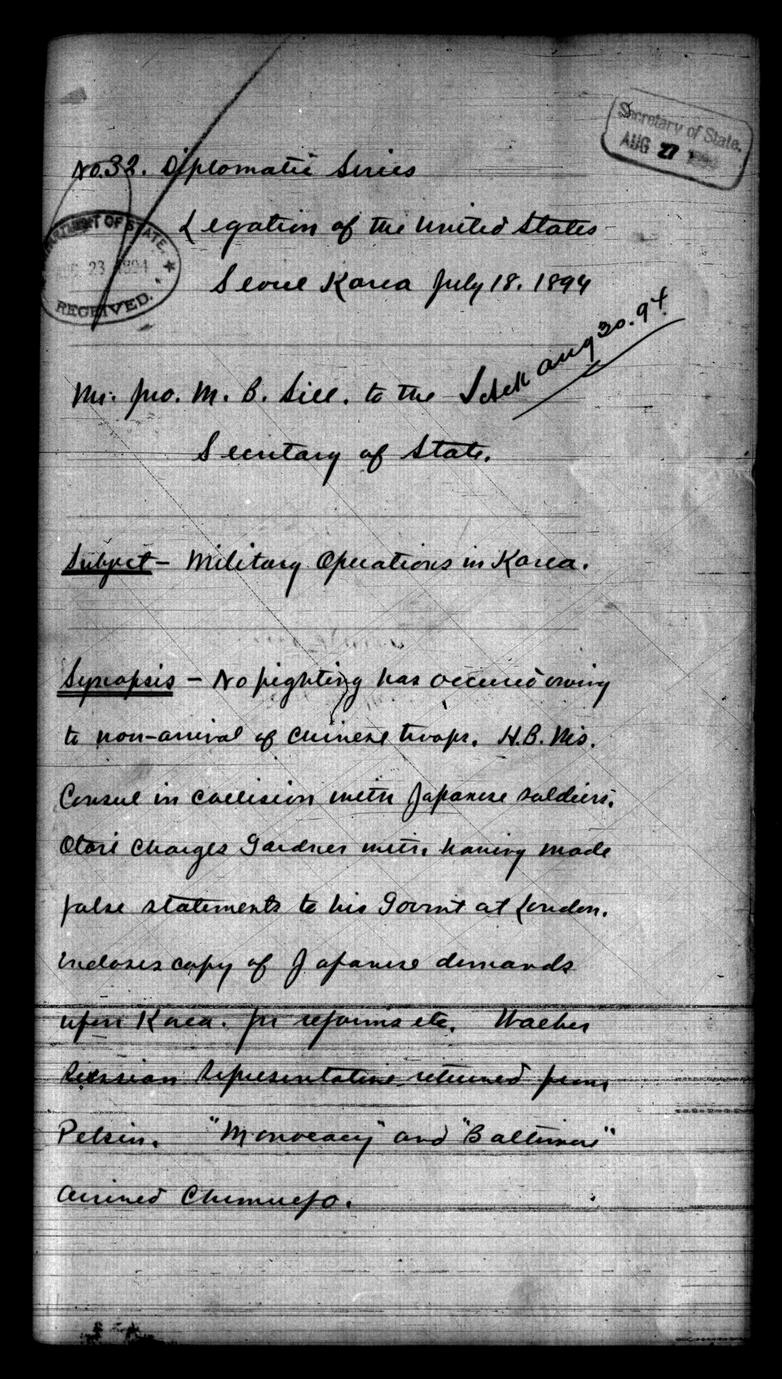 Secretary of State.
AUG 27 1894
No. 32. Diplomatic Series
DEPARTMENT OF STATE.
AUG 23 1894
RECEIVED.
Legation of the United States
Seoul Korea July 18. 1894
Aug 30. 94.
Mr. Jno. M. B. Sill. to the
Secretary of State.
Subject - Military Operations in Korea.
Synopsis - No fighting has occured owing
to non-arrival of Chinese troops. H.B. Ms.
Consul in collision with Japanese soldiers.
Otori charges Gardner with having made
false statements to his Govmt at London.
Incloses copy of Japanese demands
upon Korea. for reforms etc. Waeber
Russian Representative returned from
Pekin. "Monocacy" and "Baltimore"
arrived Chemulpo.